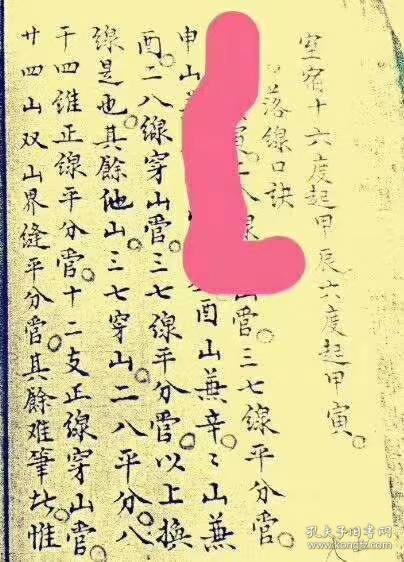 室宿十六度起甲辰六度起甲寅。
落線口訣
山营三七線平分营。
申山 酉山兼辛々山兼
酉。二八線穿山营。三七線平分营以上換
線是也。其餘他山三七穿山二八平分。八
干四維正線平分营。十二支正線穿山营。
廿四山双山界縫平分营。其餘難筆此。惟
孔夫子旧书网
www.kongfz.com